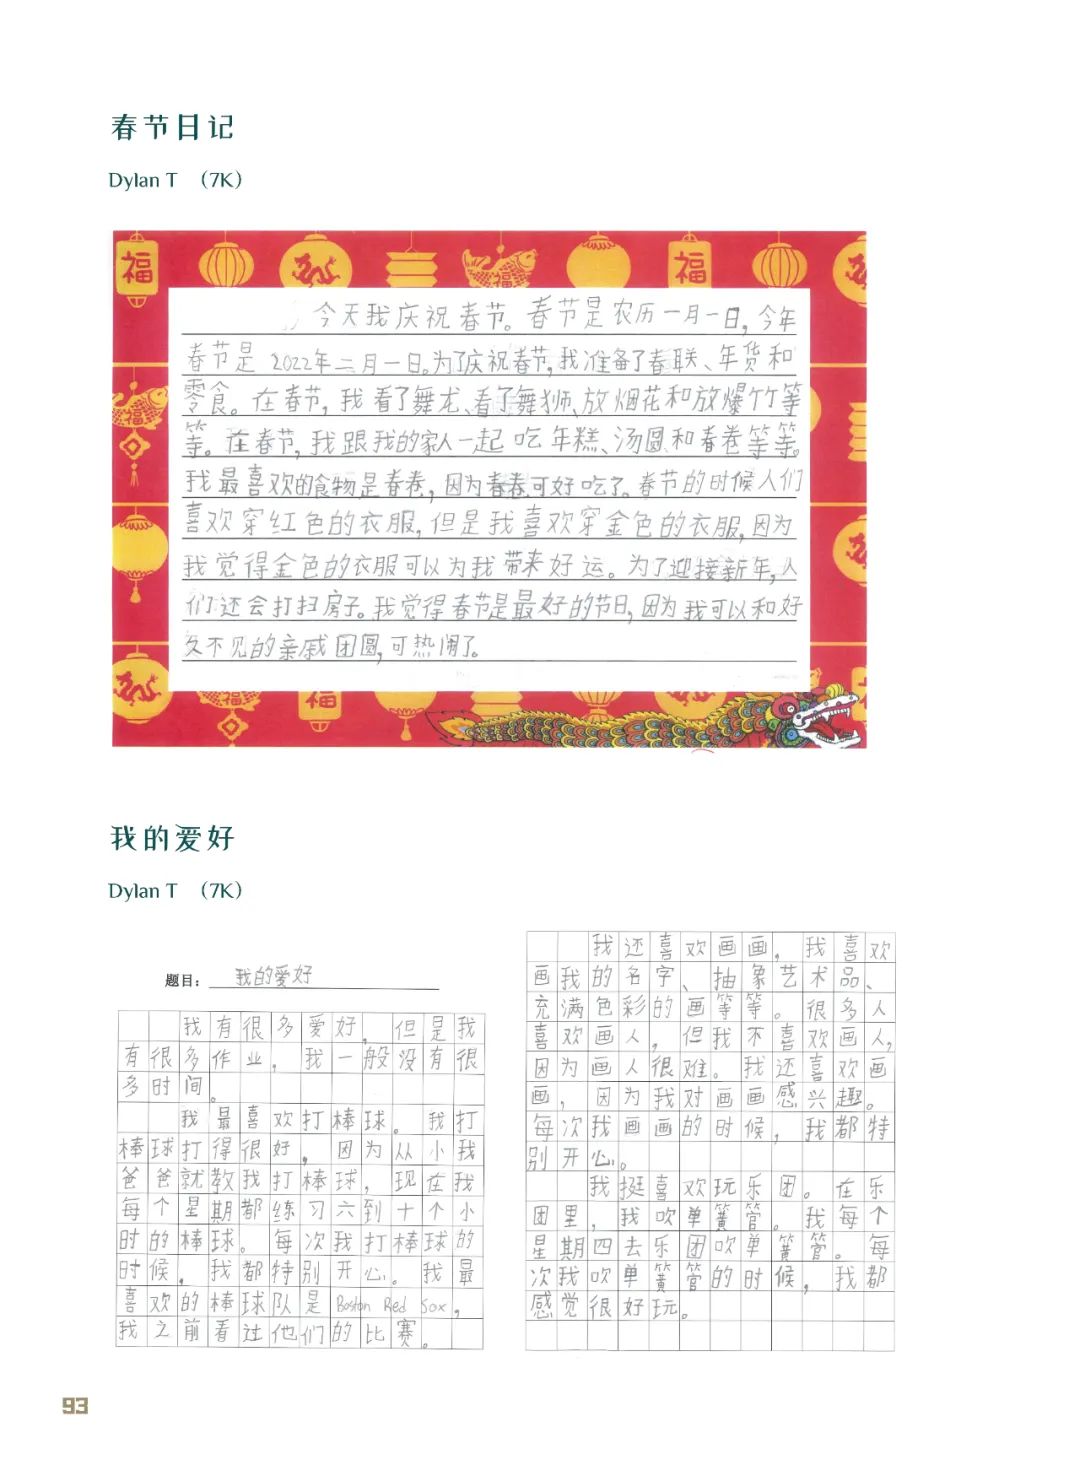 春节日记
Dylan T （7K）
福
福
今天我庆祝春节。春节是农历一月一日，今年
春节是 2022年二月一日。为了庆祝春节，我准备了春联、年货和
零食。在春节，我看了舞龙、看了舞狮、放烟花和放爆竹等
等。在春节，我跟我的家人一起吃年糕、汤圆和春卷等等。
我最喜欢的食物是春卷，因为春卷可好吃了。春节的时候人们
喜欢穿红色的衣服，但是我喜欢穿金色的衣服，因为
我觉得金色的衣服可以为我带来好运。为了迎接新年，人
们还会打扫房子。我觉得春节是最好的节日，因为我可以和好
久不见的亲戚团圆，可热闹了。
福
福
我的爱好
Dylan T （7K）
题目： 我的爱好
我有很多爱好，但是我
有很多作业，我一般没有很
多时间。
我最喜欢打棒球。我打
棒球打得很好，因为从小我
爸爸就教我打棒球，现在我
每个星期都练习六到十个小
时的棒球。每次我打棒球的
时候，我都特别开心。我最
喜欢的棒球队是 Boston Red Sox，
我之前看过他们的比赛。
我还喜欢画画，我喜欢
画我的名字、抽象艺术品、
充满色彩的画等等。很多人
喜欢画人，但我不喜欢画人，
因为画人很难。我还喜欢画
画，因为我对画画感兴趣。
每次我画画的时候，我都特
别开心。
我挺喜欢玩乐团。在乐
团里，我吹单簧管。我每个
星期四去乐团吹单簧管。每
次我吹单簧管的时候，我都
感觉很好玩。
93